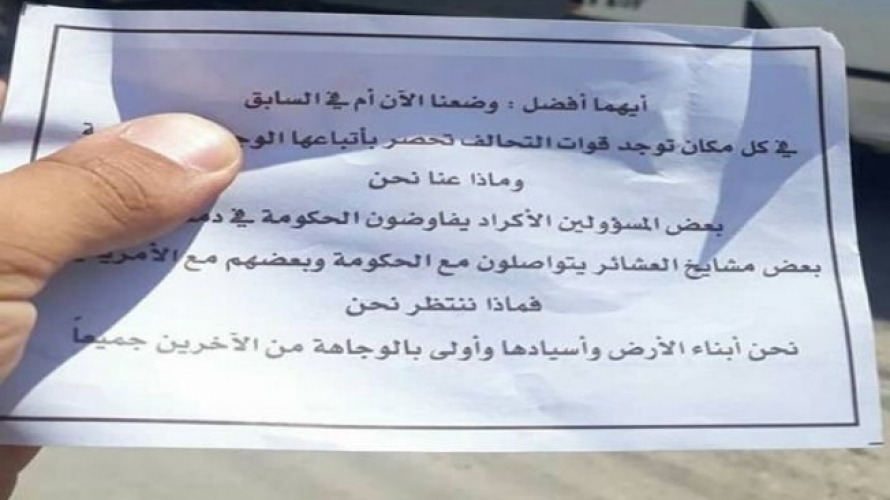 أيهما أفضل : وضعنا الآن أم في السابق
في كل مكان توجد قوات التحالف تحصر بأتباعها
وماذا عنا نحن
بعض المسؤولين الأكراد يفاوضون الحكومة في
بعض مشايخ العشائر يتواصلون مع الحكومة وبعضهم مع
فماذا ننتظر نحن
نحن أبناء الأرض وأسيادها وأولى بالوجاهة من الآخرين جميعاً